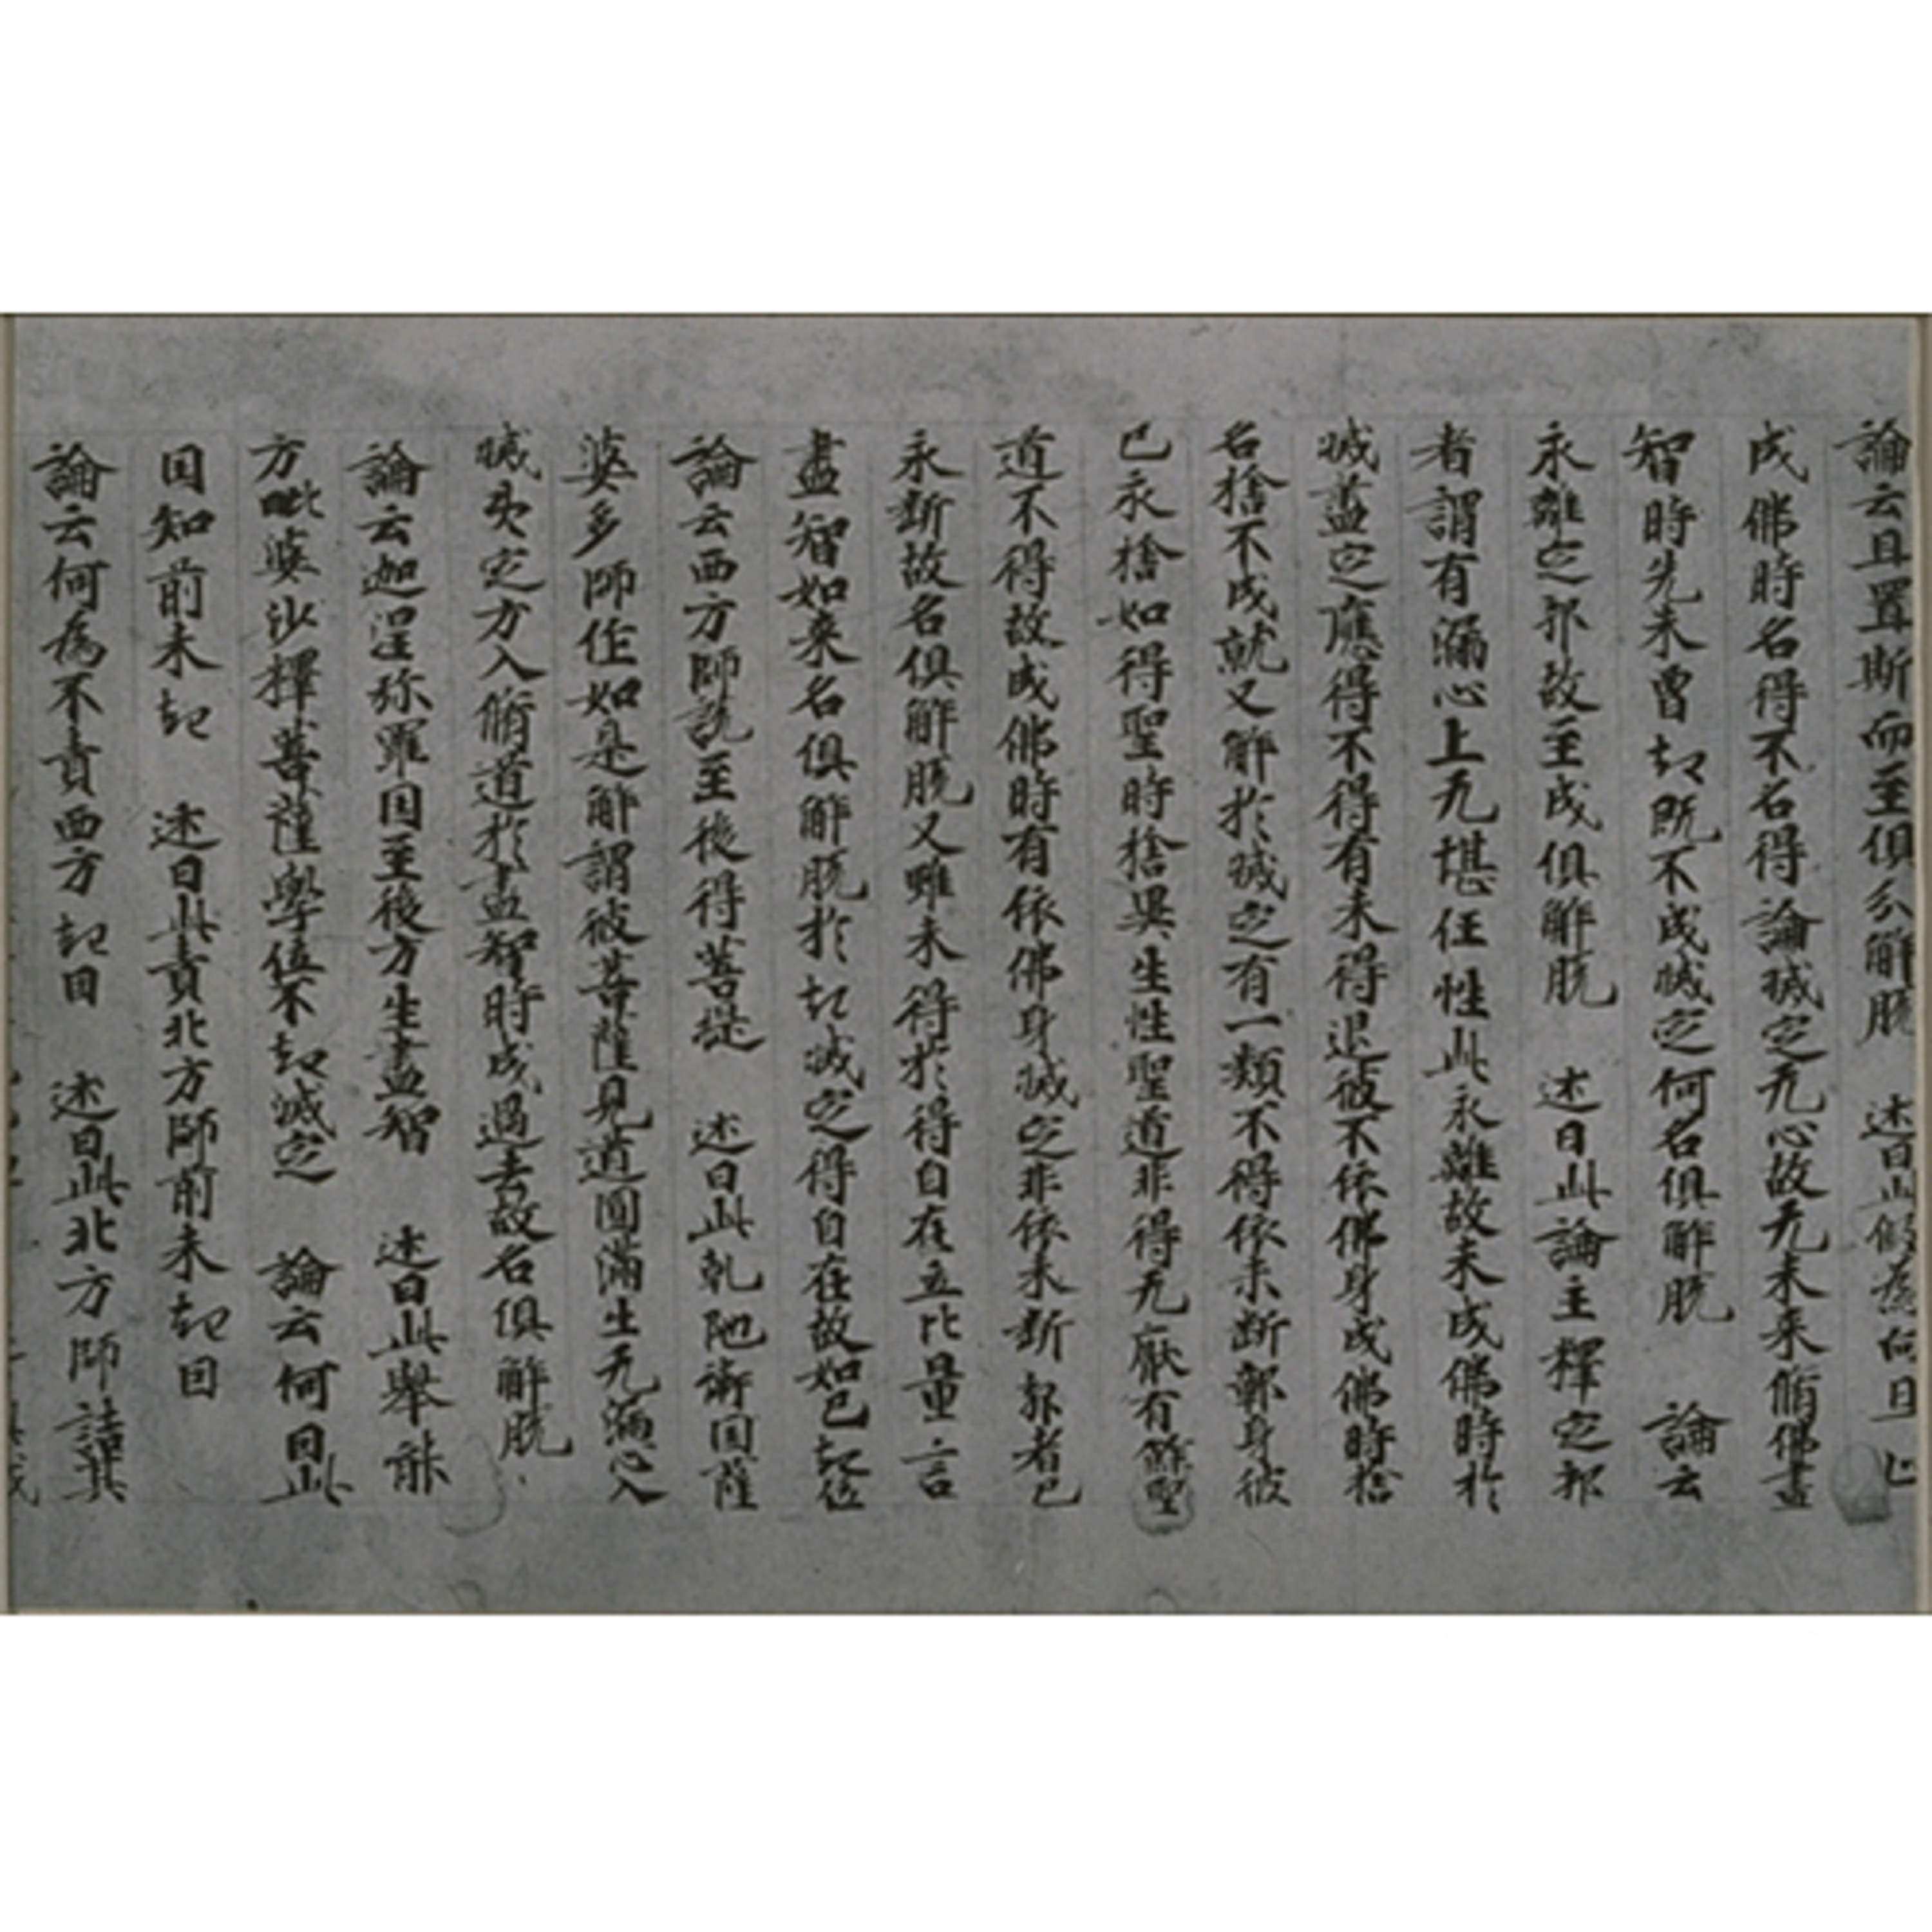 論云且置斯而至俱分解脱　述曰此假為何且
成佛時名得不名得論滅定无心故无未来脩佛盡
智時先未曾起既不成滅定何名俱解脱　論云
永離定郭故至成俱解脱　述曰此論主釋定郭
者謂有漏心上无堪任性此永離故未成佛時於
滅盡定應得不得有未得退彼不依佛身成佛時捨
名捨不成就又解於滅定有一類不得依未断郭身彼
已永捨如得聖時捨異生性聖道非得无厭有餘聖
道不得故成佛時有依佛身滅定非依未断郭者已
永断故名俱解脱又雖未得於得自在立比量言
盡智如来名俱解脱於起滅定得自在故如已起位
論云西方師説至後得菩提　述曰此乹陁衛国薩
婆多師作如是解謂彼菩薩見道圓滿生无漏心入
滅盡定方入脩道於盡智時成過去故名俱解脱
論云迦湿弥羅国至後方生盡智　述曰此舉部
方毗婆沙擇菩薩學位不起滅定　論云何曰此
国知前未起　述曰此責北方師前未起因
論云何為不責西方起因　述曰此北方師詰其